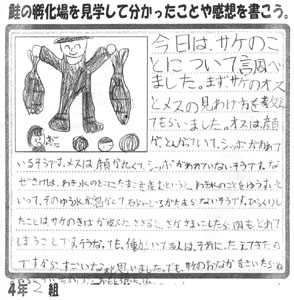 鮭の孵化場を見学して分かったことや感想を書こう。
今日は、サケのこ
とについて調べ
ました。まず、サケのオス
とメスの見わけ方を教え
てもらいました。オスは、顔
がとんがっていて、シッポがわれて
いるそうです。メスは顔が丸くて、シッポがわれていないそうです。な
ぜさけは、わき水のとこにたまごを産むというと、わき水のことをゆう水とい
って、そのゆう水が温かくて
したことはサケのきばが皮ふにささると、さかさまにしたら、肉もとれて
しまうことです。
ですから、すごいなぁと思いました。でも、サケのおなかをさいたら
4年2組